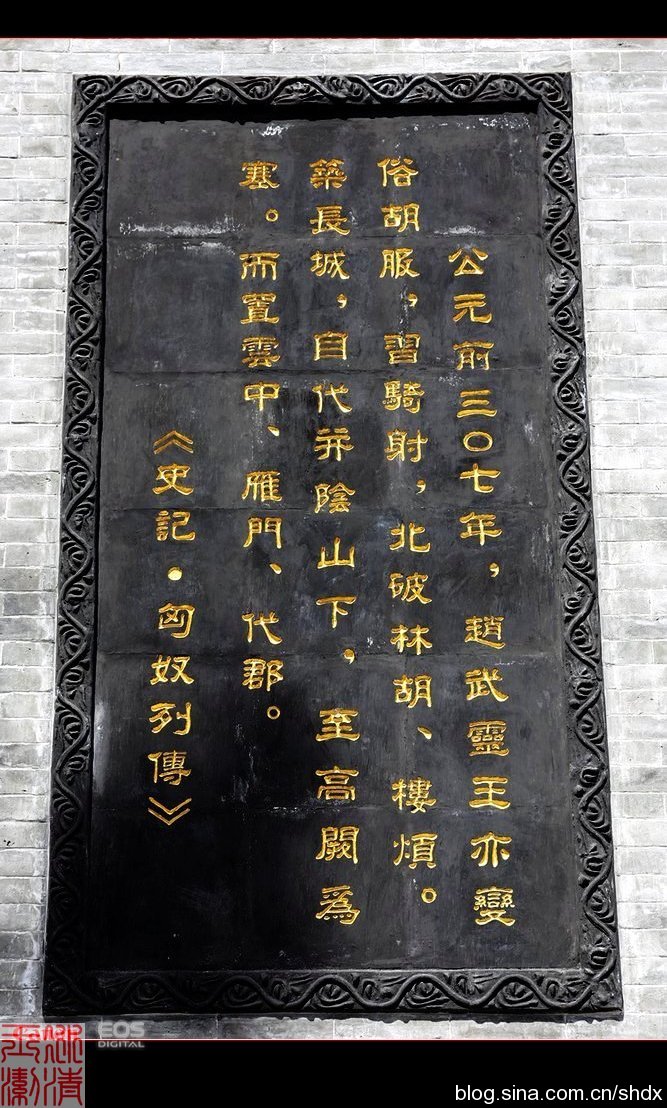 公元前三〇七年，趙武靈王亦變
俗胡服，習騎射，北破林胡、樓煩。
築長城，自代并陰山下，至高闕為
塞。而置雲中、雁門、代郡。
《史記·匈奴列傳》
EOS
DIGITAL
blog.sina.com.cn/shdx